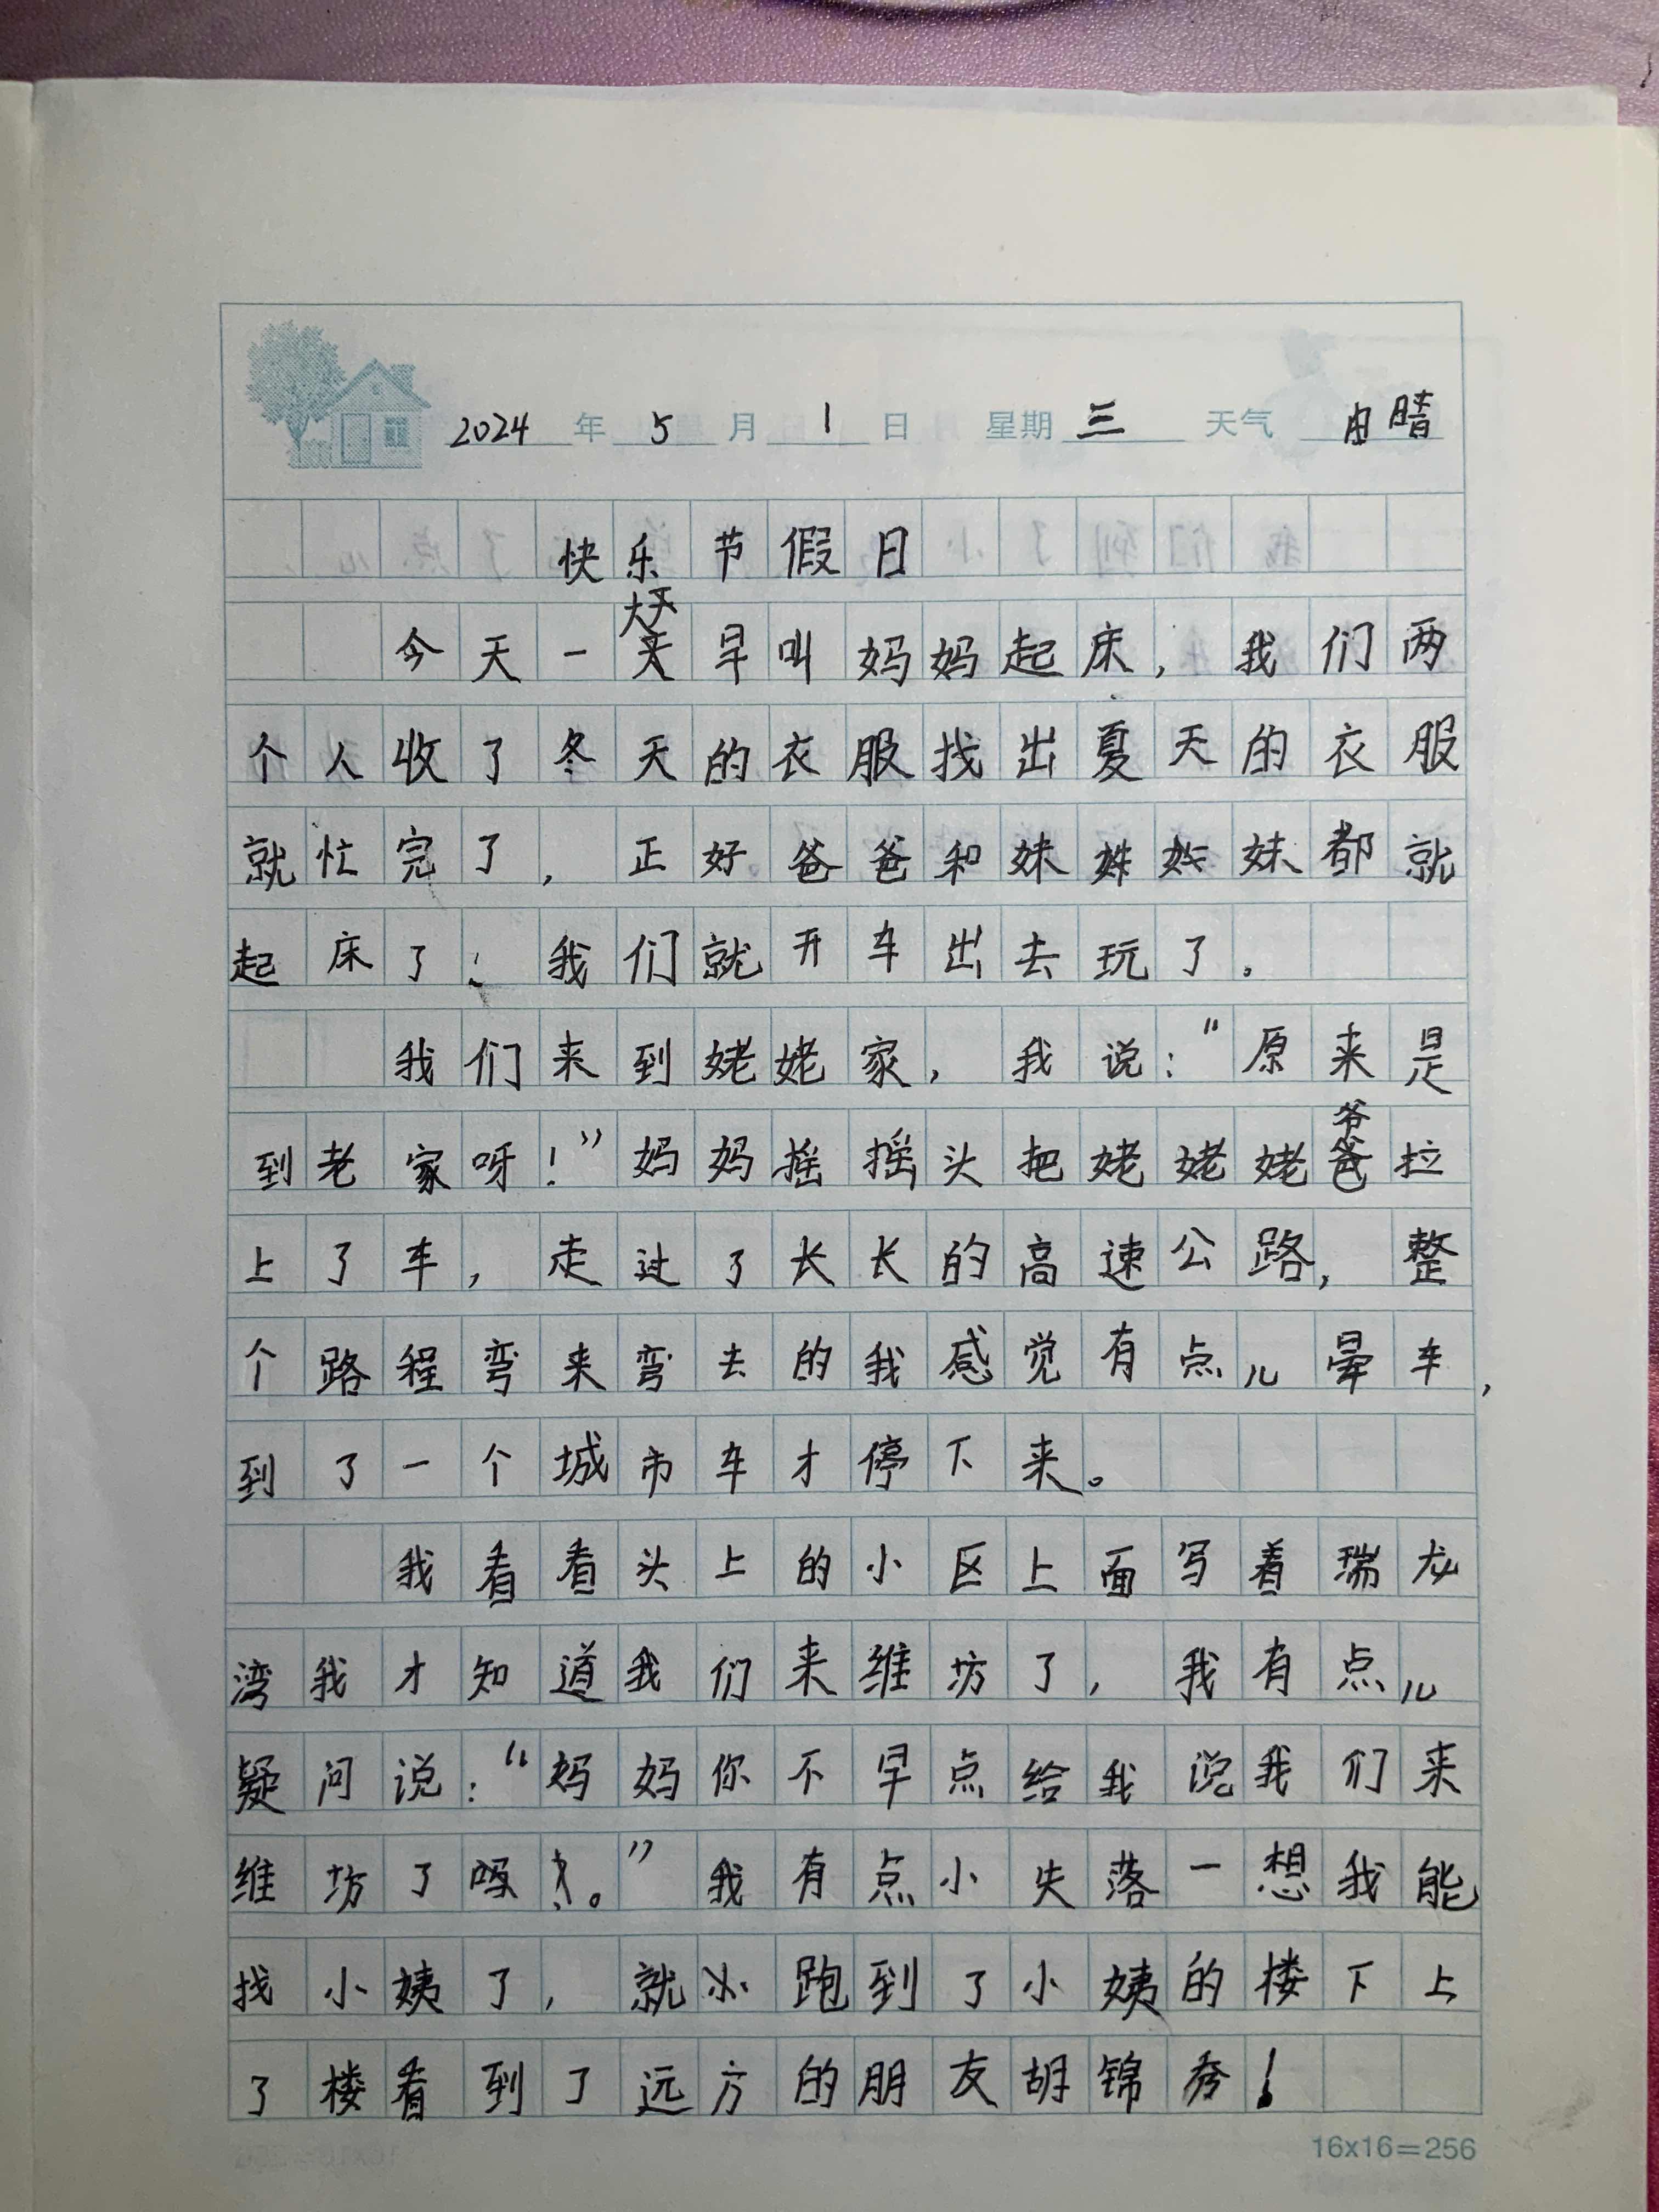 2024年5月1日 星期三 天气 晴
快乐节假日
今天一大早叫妈妈起床，我们两
个人收了冬天的衣服找出夏天的衣服
就忙完了，正好爸爸和妹妹都就
起床了！我们就开车出去玩了。
我们来到姥姥家，我说：“原来是
到老家呀！”妈妈摇摇头把姥姥姥爷拉
上了车，走过了长长的高速公路，整
个路程弯来弯去的我感觉有点儿晕车，
到了一个城市车才停下来。
我看看头上的小区上面写着瑞龙
湾我才知道我们来维坊了，我有点儿
疑问说：“妈妈你不早点给我说我们来
维坊了吗。”我有点小失落一想我能
找小姨了，就跑到了小姨的楼下上
了楼看到了远方的朋友胡锦秀！
16x16=256